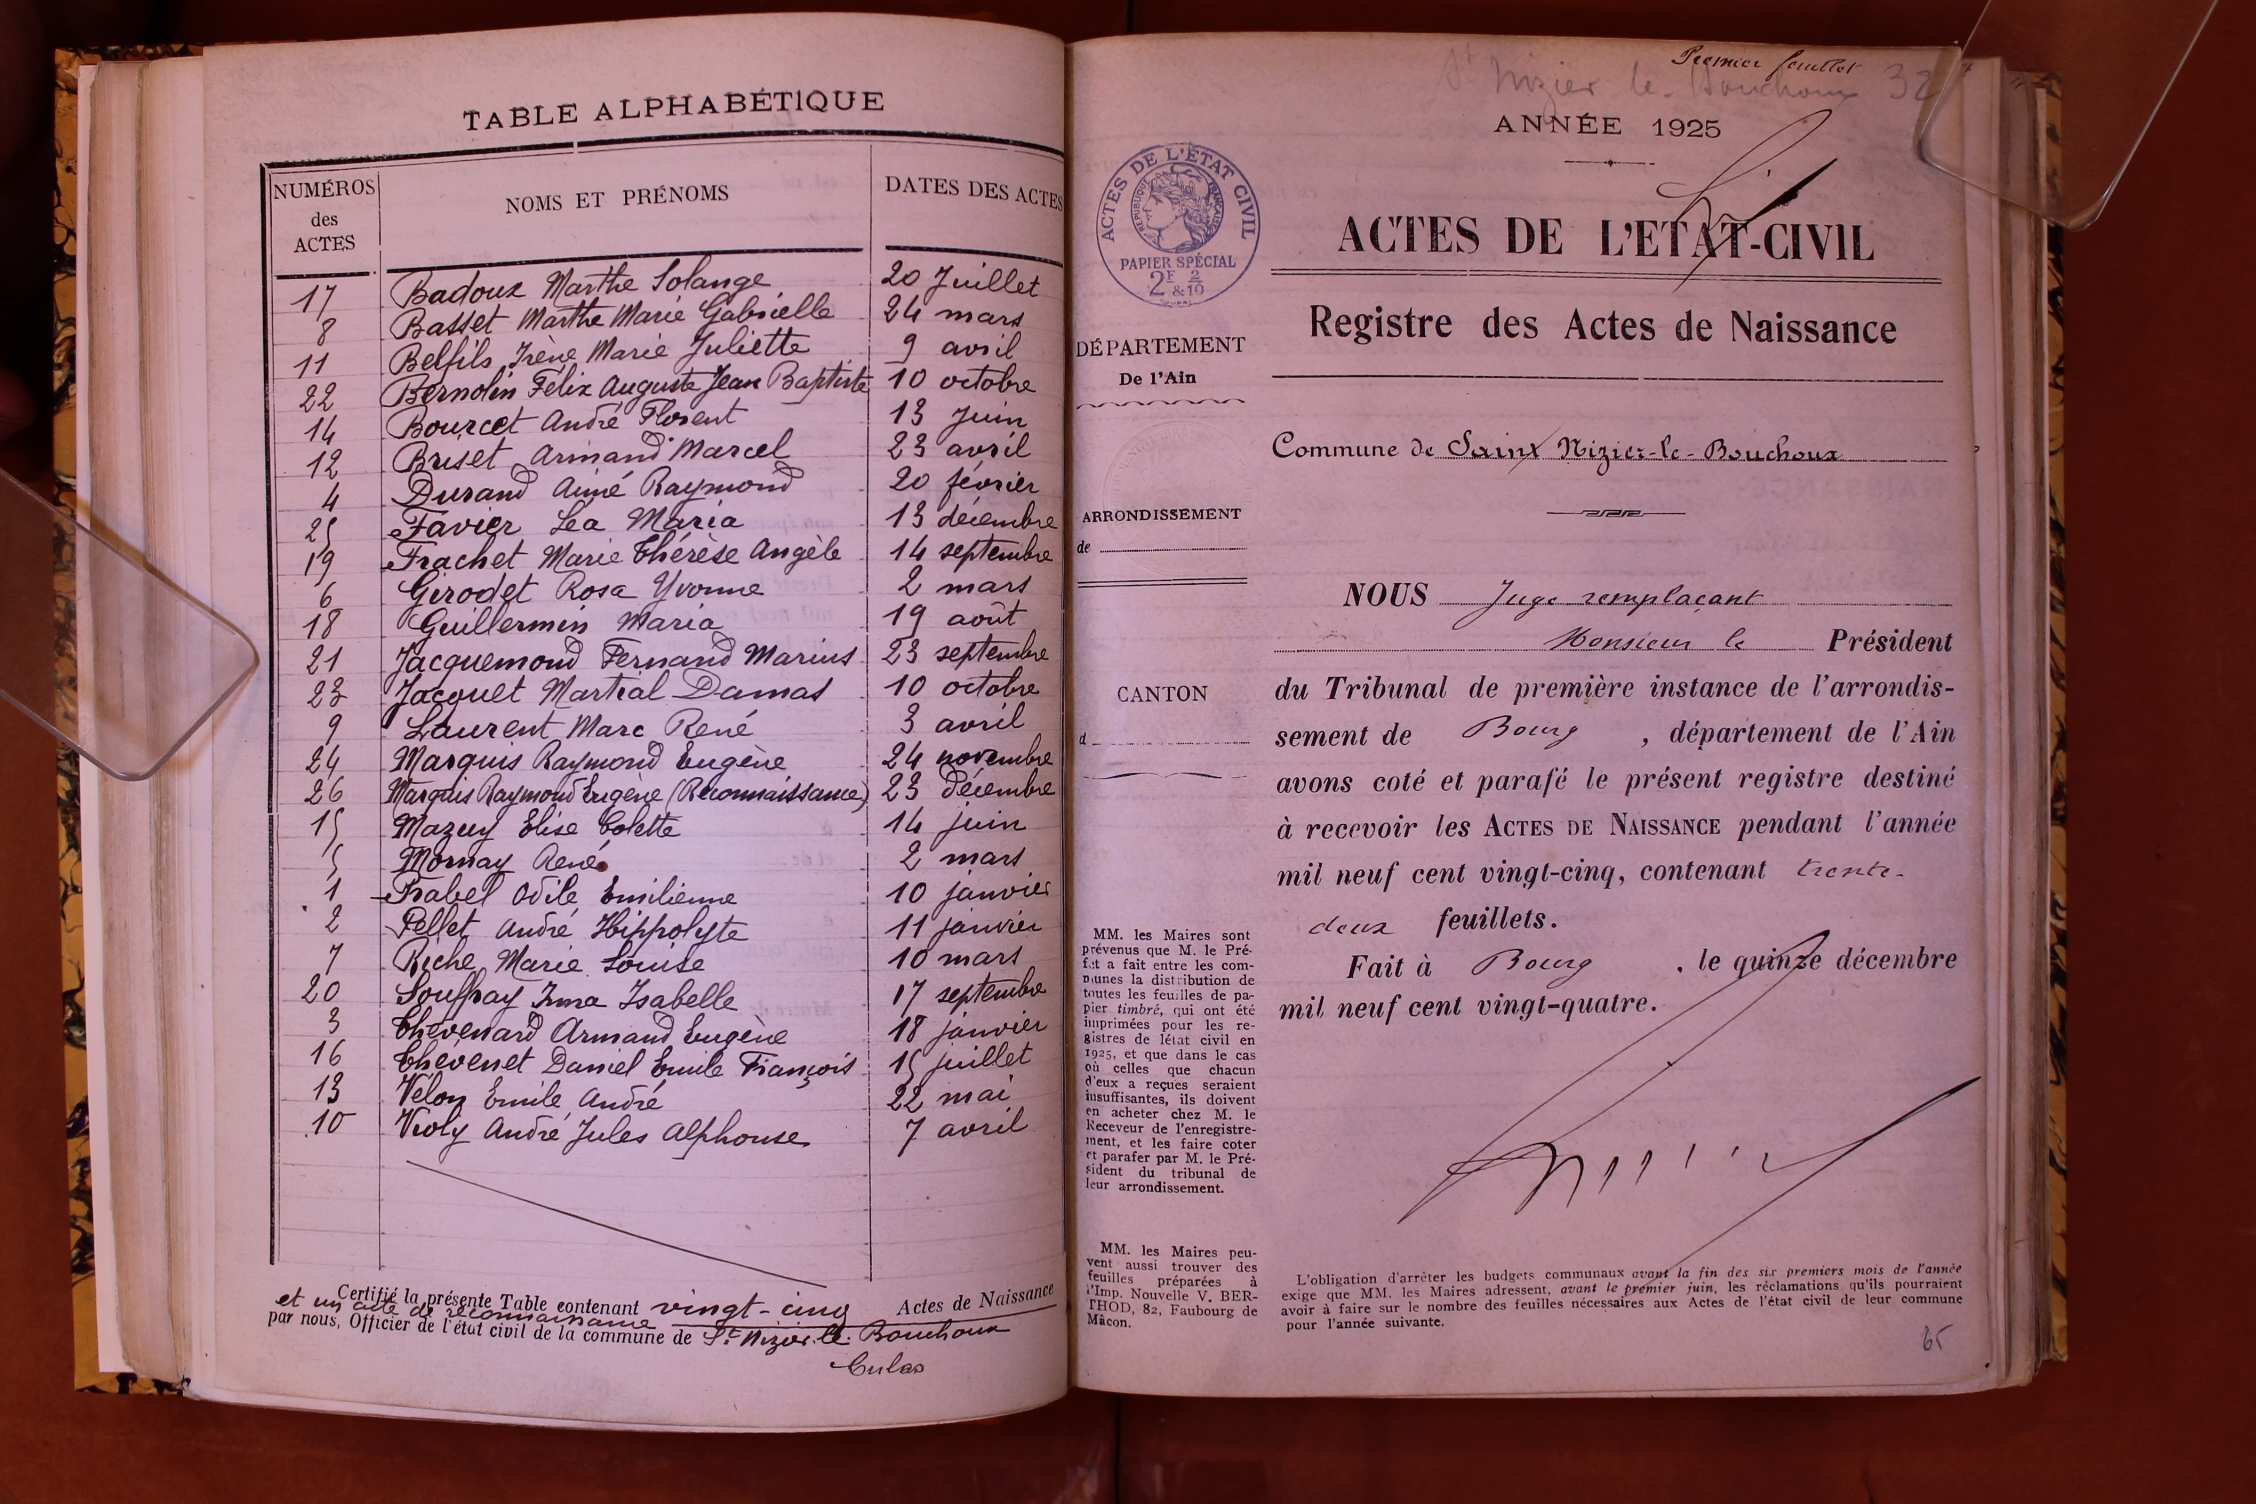 TABLE ALPHABÉTIQUE
NUMÉROS des ACTES
NOMS ET PRÉNOMS
DATES DES ACTES
17 Badoux Marthe Solange 20 Juillet
8 Basset Marthe Marie Gabrielle 24 mars
11 Belfils Irène Marie Juliette 9 avril
22 Bernolin Félix Auguste Jean Baptiste 10 octobre
14 Bourcet André Florent 13 Juin
12 Briset Armand Marcel 23 avril
4 Durand Aimé Raymond 20 février
25 Favier Lea Maria 13 décembre
19 Frachet Marie Thérèse Angèle 14 septembre
6 Girodet Rosa Yvonne 2 mars
18 Guillermin Maria 19 août
21 Jacquemond Fernand Marius 23 septembre
23 Jacquet Martial Damas 10 octobre
9 Laurent Marc René 3 avril
24 Marquis Raymond Eugène 24 novembre
26 Marquis Raymond Eugène (Reconnaissance) 23 Décembre
15 Mazuy Elise Colette 14 juin
5 Mornay René 2 mars
1 Odile Emilienne 10 janvier
2 Pellet André Hippolyte 11 janvier
7 Riche Marie Louise 10 mars
20 Souffray Irma Isabelle 17 septembre
3 Thévenard Armand Eugène 18 janvier
16 Thévenet Daniel Emile François 15 juillet
13 Vélon Emile André 22 mai
10 Violy André Jules Alphonse 7 avril
Certifié la présente Table contenant vingt-cinq Actes de Naissance
et un acte de reconnaissance
par nous, Officier de l'état civil de la commune de St Nizier le Bouchoux
Culas
Premier feuillet
St Nizier-le-Bouchoux 32
ANNÉE 1925
ACTES DE L'ÉTAT CIVIL
RÉPUBLIQUE FRANÇAISE
PAPIER SPÉCIAL
2F & 2/10
ACTES DE L'ETAT-CIVIL
Registre des Actes de Naissance
DÉPARTEMENT
De l'Ain
Commune de Saint Nizier-le-Bouchoux
ARRONDISSEMENT
de
NOUS Juge remplaçant
Monsieur le Président
CANTON
d
du Tribunal de première instance de l'arrondis-
sement de Bourg , département de l'Ain
avons coté et parafé le présent registre destiné
à recevoir les ACTES DE NAISSANCE pendant l'année
mil neuf cent vingt-cinq, contenant trente-
deux feuillets.
Fait à Bourg , le quinze décembre
mil neuf cent vingt-quatre.
MM. les Maires sont
prévenus que M. le Pré-
fet a fait entre les com-
munes la distribution de
toutes les feuilles de pa-
pier timbré, qui ont été
imprimées pour les re-
gistres de létat civil en
1925, et que dans le cas
où celles que chacun
d'eux a reçues seraient
insuffisantes, ils doivent
en acheter chez M. le
Receveur de l'enregistre-
ment, et les faire coter
et parafer par M. le Pré-
sident du tribunal de
leur arrondissement.
MM. les Maires peu-
vent aussi trouver des
feuilles préparées à
l'Imp. Nouvelle V. BER-
THOD, 82, Faubourg de
Mâcon.
L'obligation d'arrêter les budgets communaux avant la fin des six premiers mois de l'année
exige que MM. les Maires adressent, avant le premier juin, les réclamations qu'ils pourraient
avoir à faire sur le nombre des feuilles nécessaires aux Actes de l'état civil de leur commune
pour l'année suivante.
65